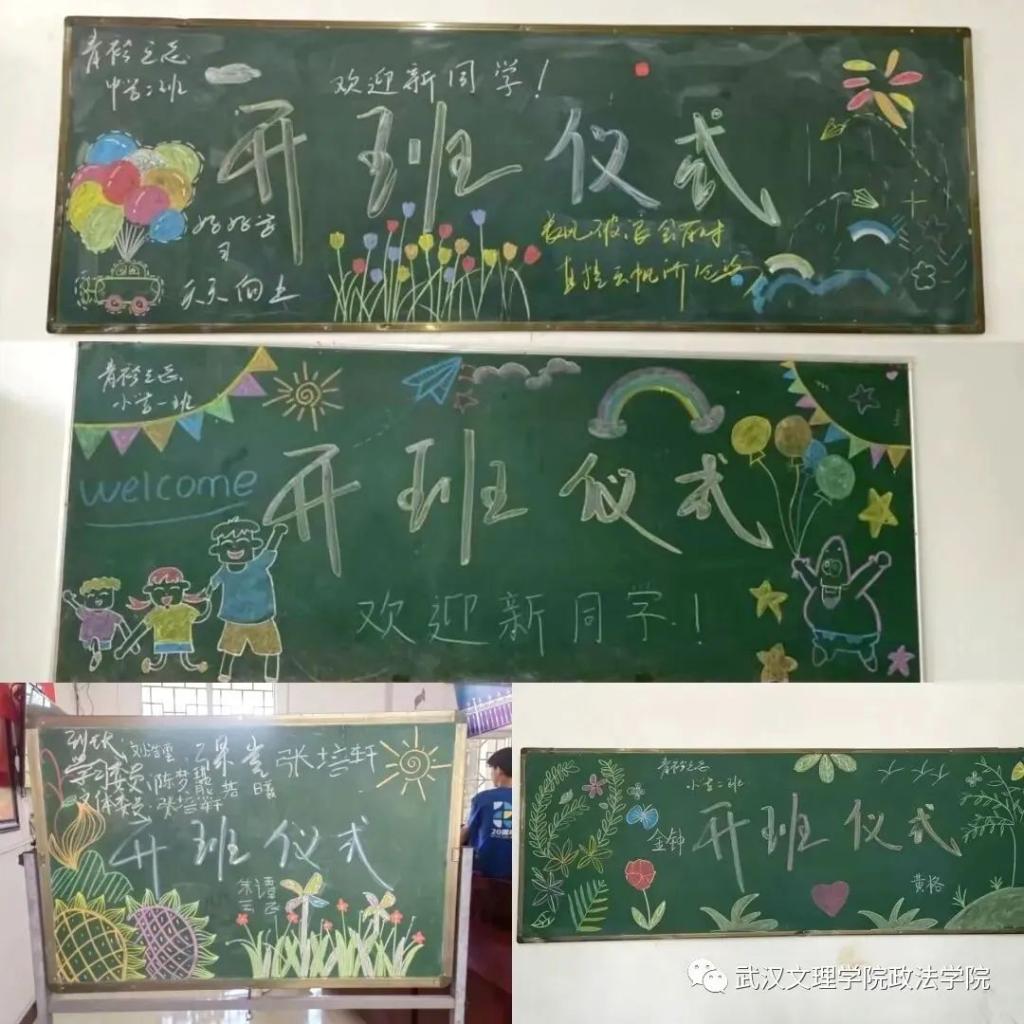 青衿之志
中学二班
欢迎新同学！
开班仪式
好好学
习
天天向上
长风破浪会有时
直挂云帆济沧海
青衿之志
小学一班
welcome
开班仪式
欢迎新同学！
张培轩
学习委员
体委
开班仪式
青衿之志
小学二班
金钟
开班仪式
黄格
武汉文理学院政法学院